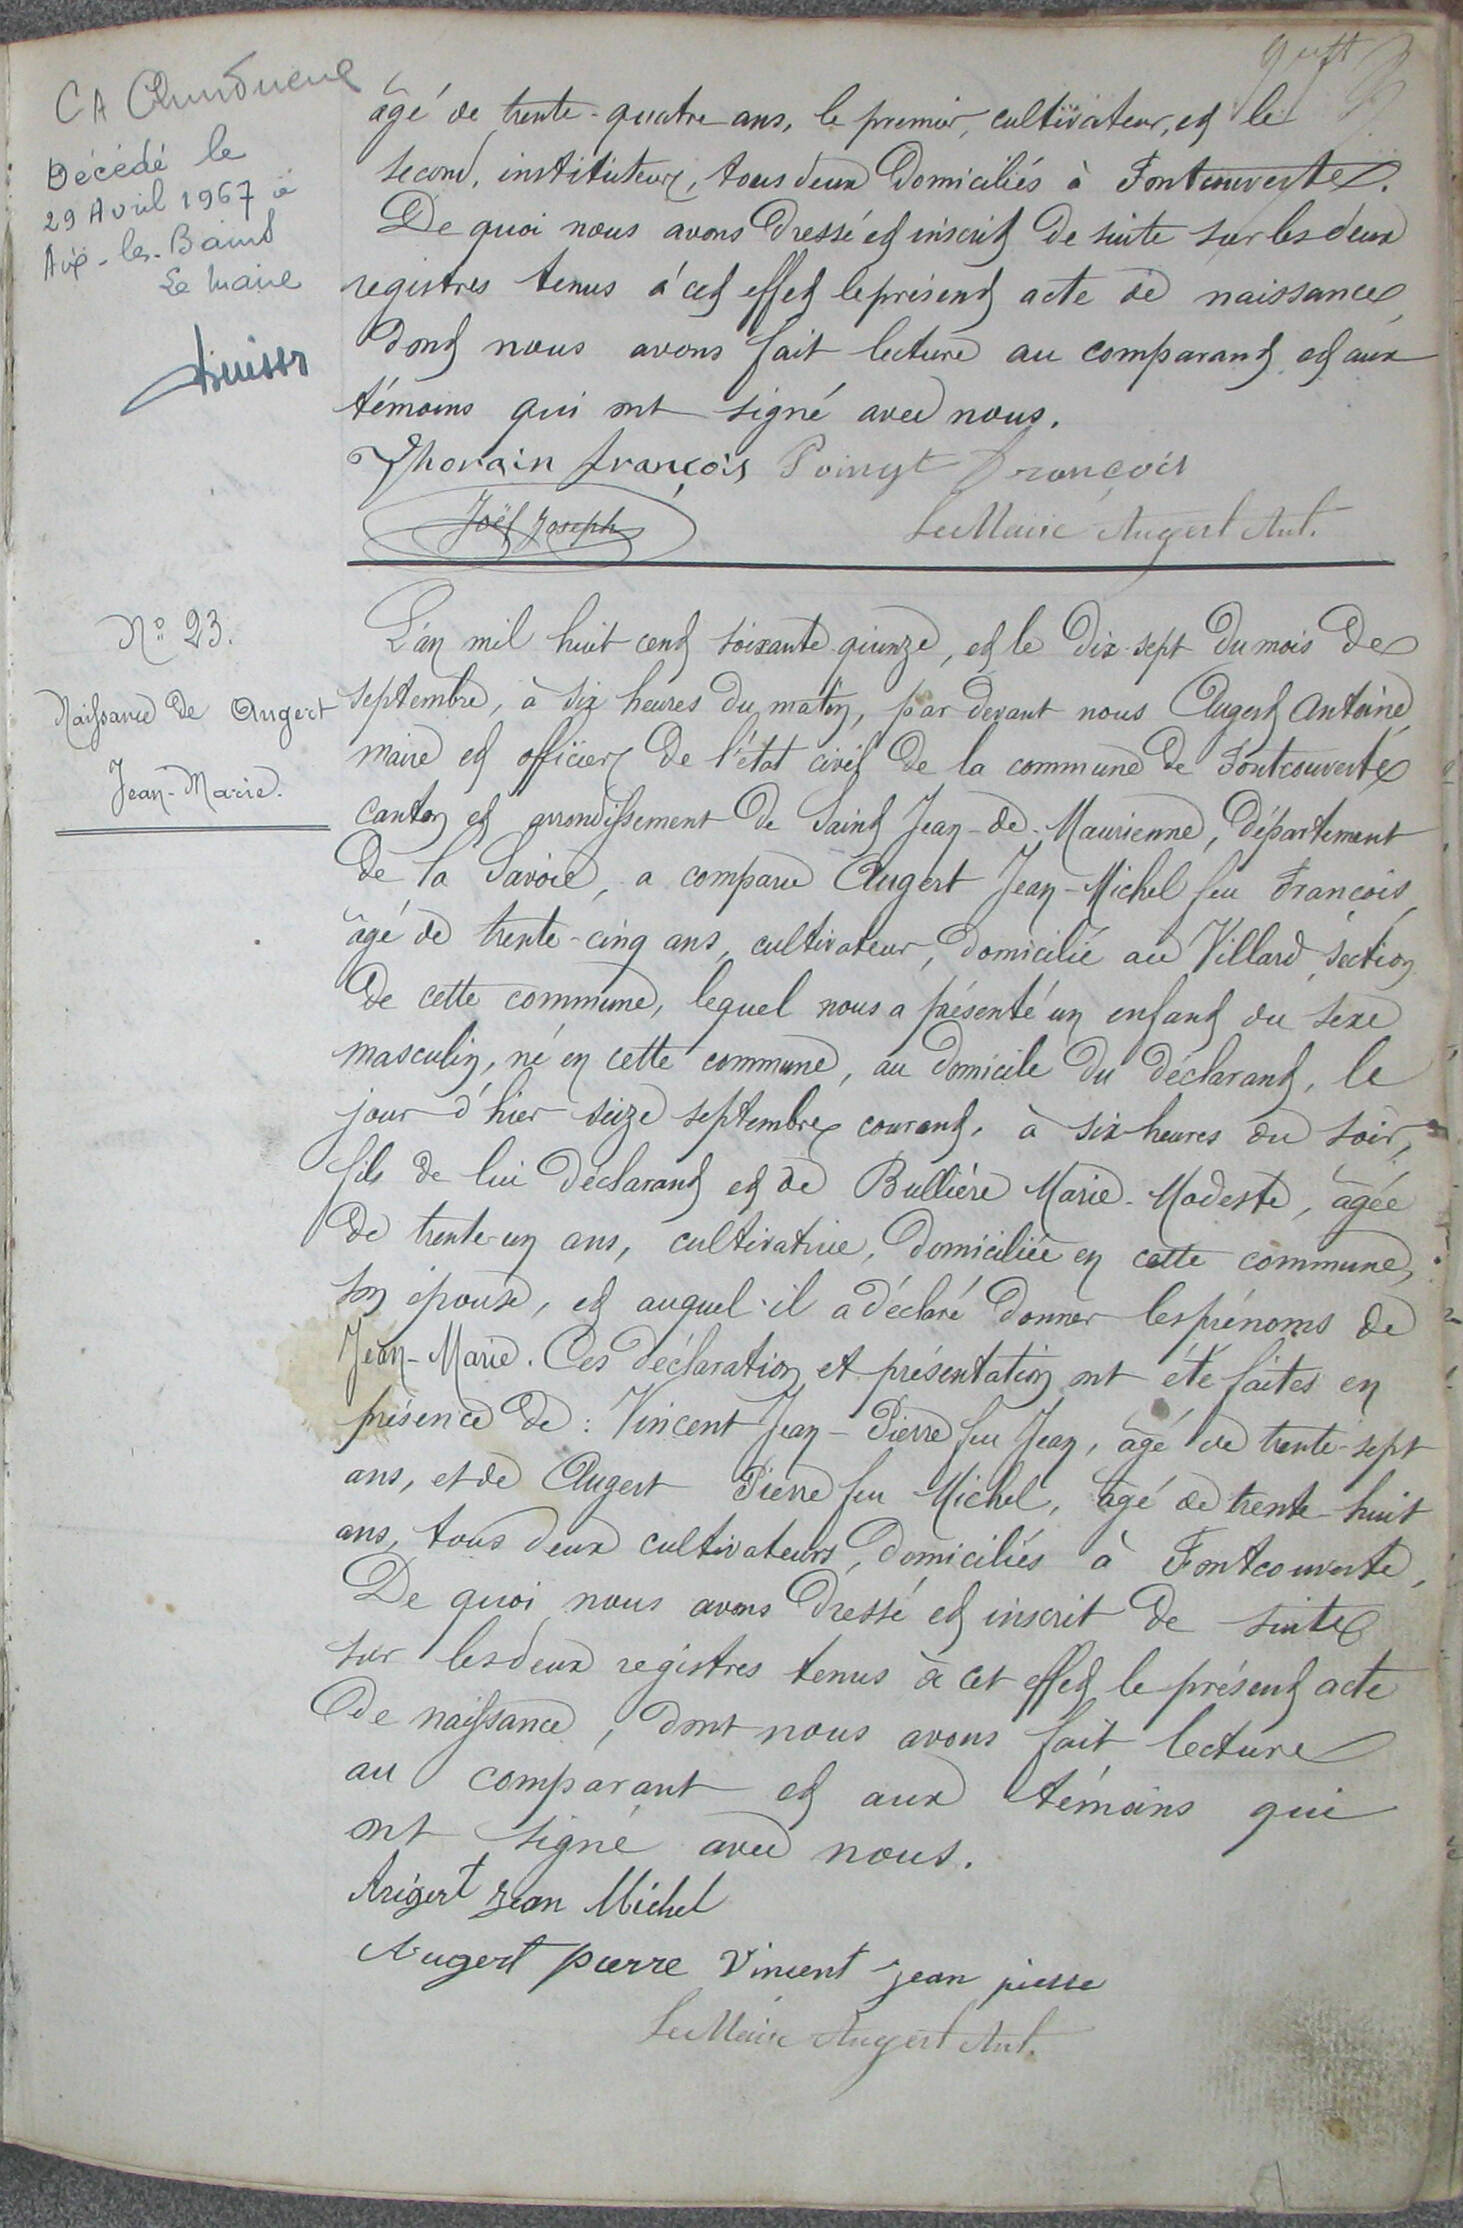 Décédé le
29 Avril 1967 à
Aix-les-Bains
Le Maire
âgé de trente-quatre ans, le premier, cultivateur, et le
second, instituteur, tous deux domiciliés à Fontcouverte.
De quoi nous avons dressé et inscrit de suite sur les deux
registres tenus à cet effet le présent acte de naissance,
dont nous avons fait lecture au comparant et aux
témoins qui ont signé avec nous.
Thorain françois Poingt François
Joël Joseph Le Maire Augert Ant.
N° 23.
Naissance de Augert
Jean-Marie.
L'an mil huit cent soixante-quinze, et le dix-sept du mois de
septembre, à six heures du matin, par devant nous Augert Antoine,
maire et officier de l'état civil de la commune de Fontcouverte
canton et arrondissement de Saint Jean-de-Maurienne, département
de la Savoie, a comparu Augert Jean-Michel feu François,
âgé de trente-cinq ans, cultivateur, domicilié au Villard, section
de cette commune, lequel nous a présenté un enfant du sexe
masculin, né en cette commune, au domicile du déclarant, le
jour d'hier seize septembre courant, à six heures du soir,
fils de lui déclarant et de Bullière Marie-Modeste, âgée
de trente-un ans, cultivatrice, domiciliée en cette commune,
son épouse, et auquel il a déclaré donner les prénoms de
Jean-Marie. Ces déclaration et présentation ont été faites en
présence de : Vincent Jean-Pierre feu Jean, âgé de trente-sept
ans, et de Augert Pierre feu Michel, âgé de trente-huit
ans, tous deux cultivateurs, domiciliés à Fontcouverte,
De quoi nous avons dressé et inscrit de suite
sur les deux registres tenus à cet effet le présent acte
de naissance, dont nous avons fait lecture
au comparant et aux témoins qui
ont signé avec nous.
Augert jean Michel
Augert pierre Vincent jean pierre
Le Maire Augert Ant.